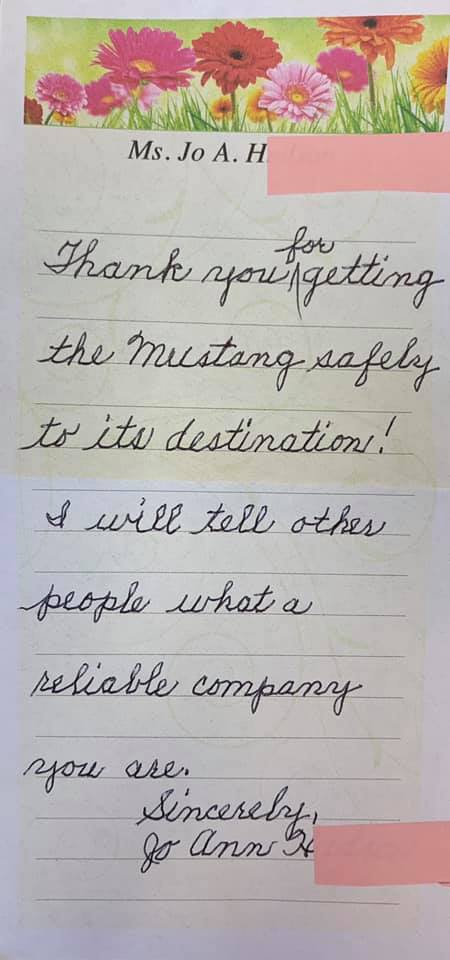 Ms. Jo A. H
for
Thank you getting
the Mustang safely
to its destination!
I will tell other
people what a
reliable company
you are.
Sincerely,
Jo Ann H